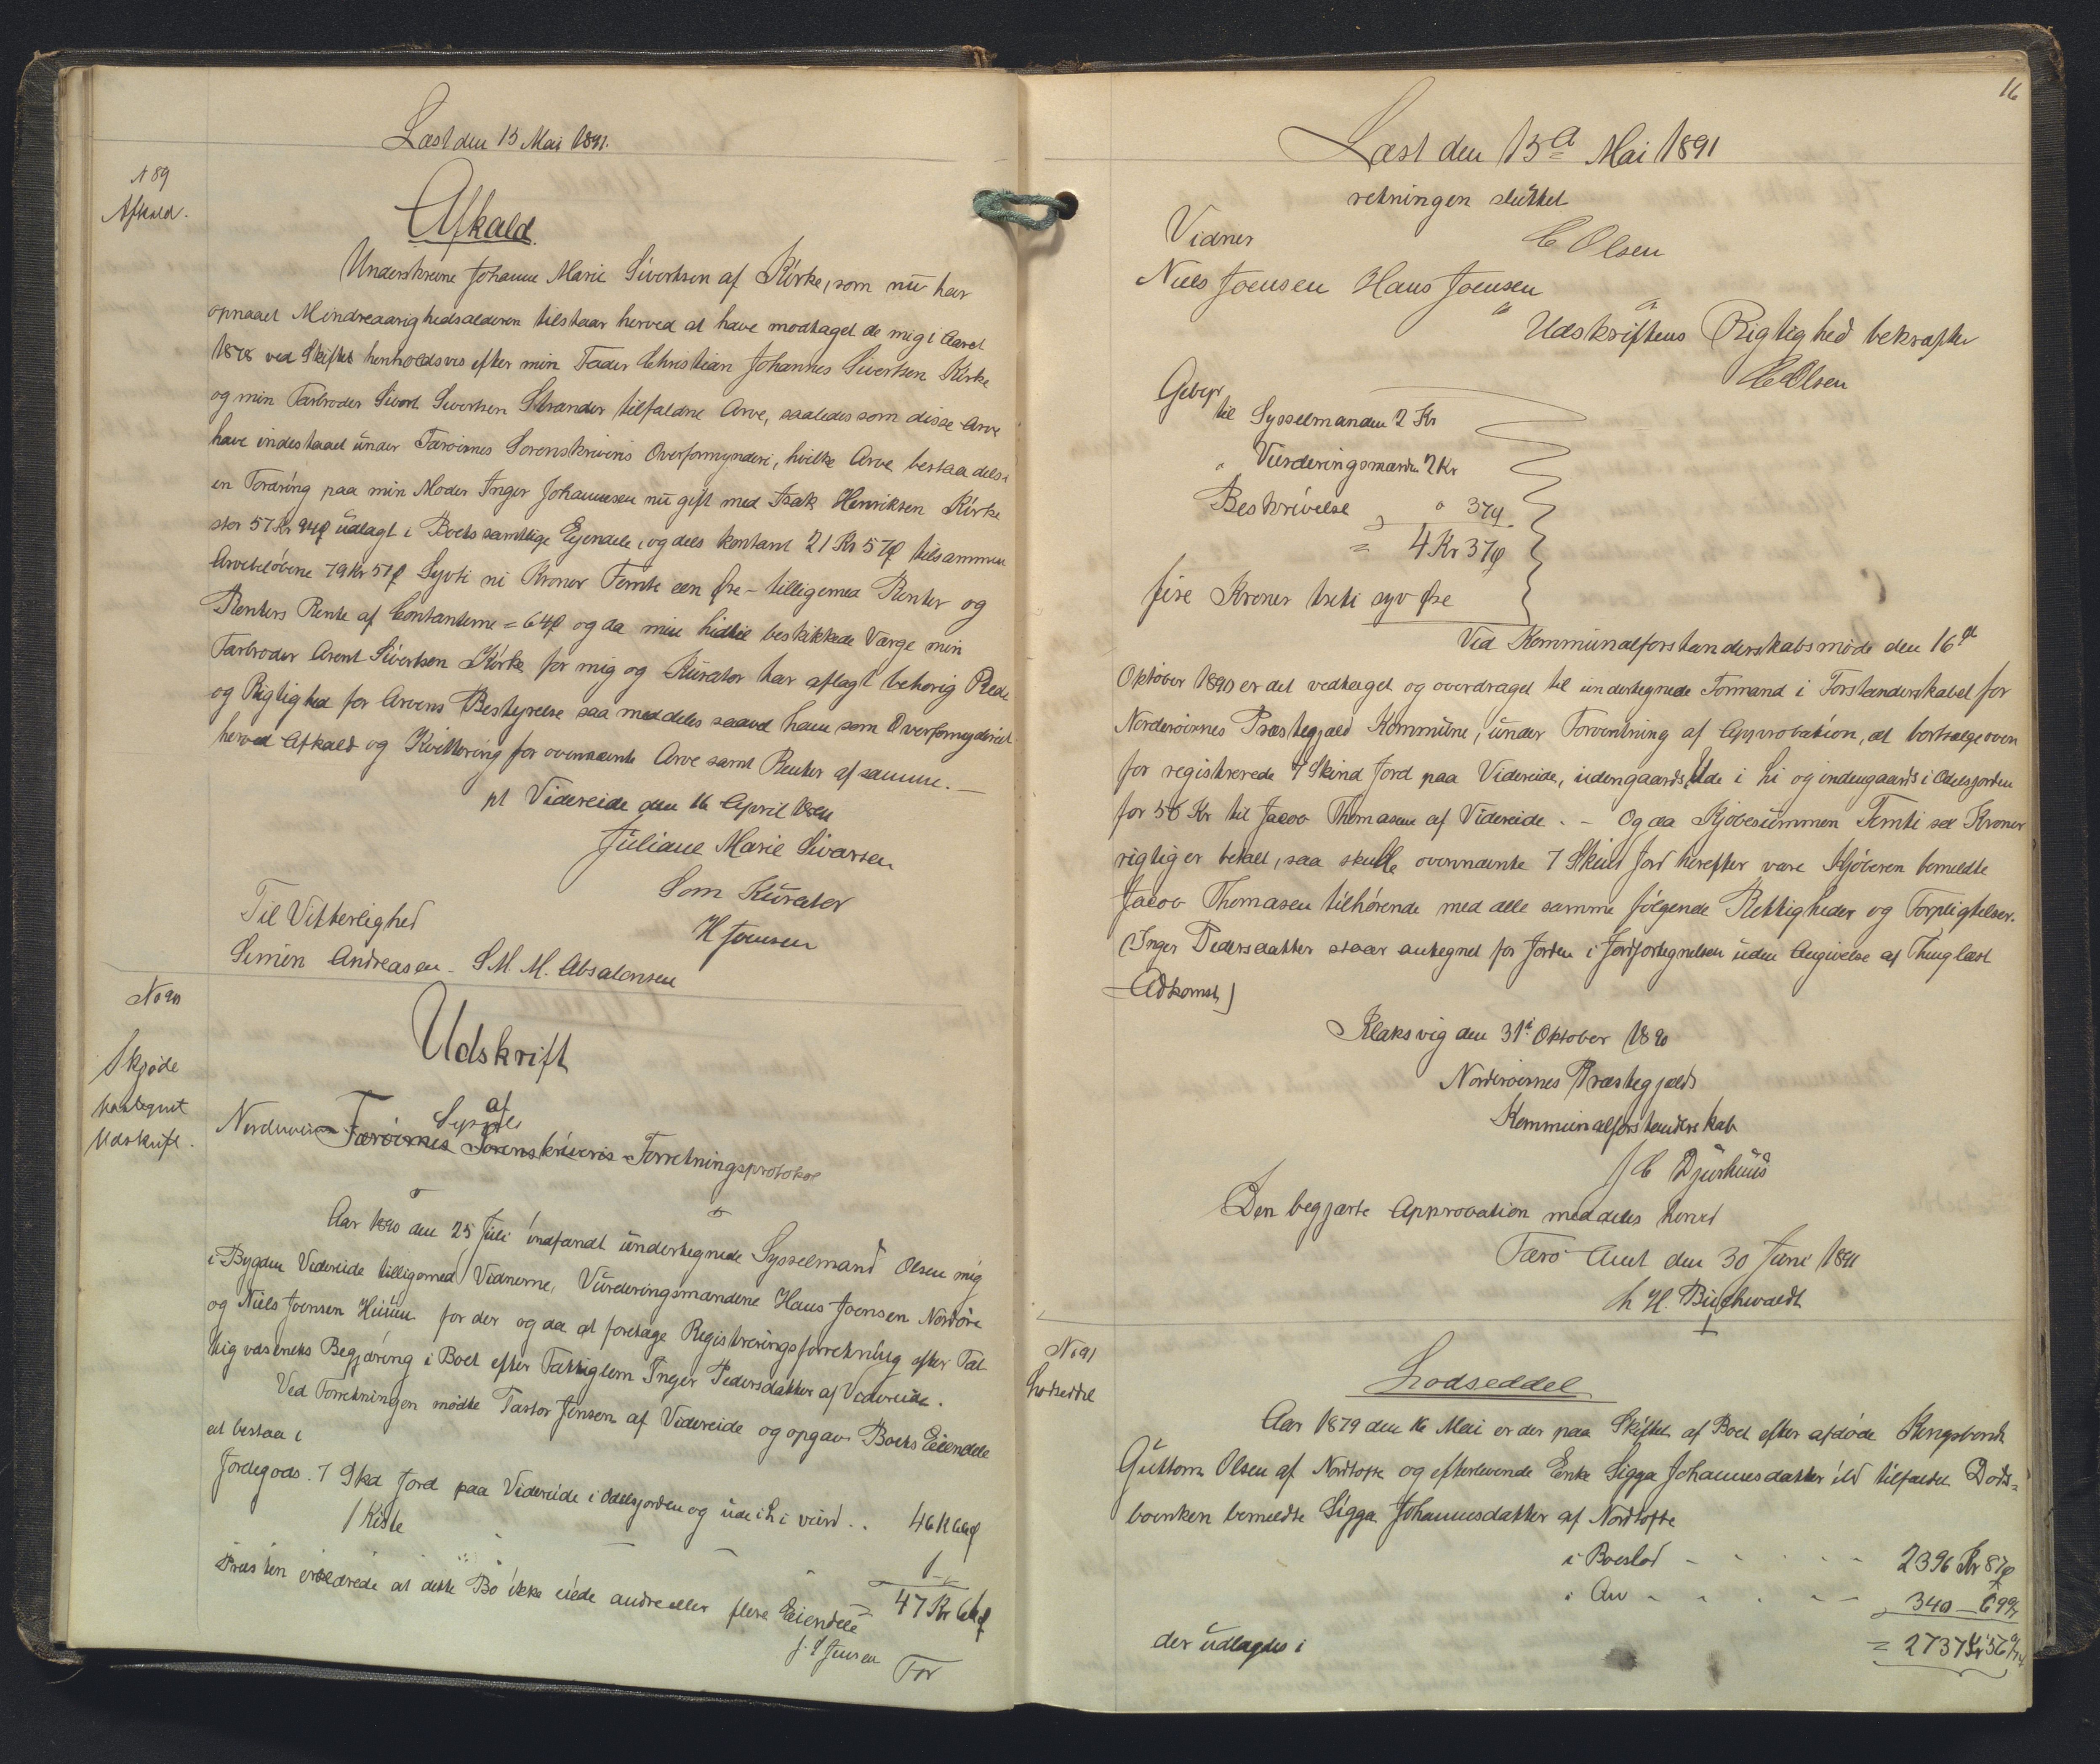 Læst den 15 Mai 1891.
N 89
Afkald.
Afkald.
Underskrevne Johanne Marie Sivertsen af Kirke, som nu har
opnaaet Mindreaarighedsalderen tilstaar herved at have modtaget de mig i Aaret
1878 ved Skiftet henholdsvis efter min Fader Christian Johannes Sivertsen Kirke
og min Farbroder Sivert Sivertsen Strander tilfaldne Arve, saaledes som disse Arve
have indestaaet under Færøernes Sorenskriveris Overformynderi, hvilke Arve bestaa dels i
en Fordring paa min Moder Inger Johannesen nu gift med Isak Henriksen Kirke
stor 57 Kr 94ø udlagt i Boets samtlige Ejendele, og dels kontant 21 Kr 57ø tilsammen
Arvebeløbene 79 Kr 51ø Sytti ni Kroner Femti een Øre – tilligemed Renter og
Renters Rente af Contanterne = 64ø og da min hidtil beskikkede Værge min
Farbroder Arent Sivertsen Kirke for mig og Kurator har aflagt behørig Rede
og Rigtighed for Arvens Bestyrelse saa meddeles saavel ham som Overformynderiet
herved Afkald og Kvittering for ovennævnte Arve samt Renter af samme. –
pt Videreide den 16 April 1891
Juliane Marie Sivarsen
Som Kurator
H Joensen
Til Vitterlighed
Simon Andreasen – S. M. M. Absalonsen
No 90
Skjøde
Udskrift.
Udskrift
af
Syssels
Norderøernes Færøernes Sorenskriveris Forretningsprotokol
Aar 1890 den 25 Juli indfandt undertegnede Sysselmand Olsen mig
i Bygden Videreide tilligemed Vidnerne, Vurderingsmændene Hans Joensen Nordøre
og Niels Joensen Huuun for der og da at foretage Registreringsforretning efter Fat-
tigvæsenets Begjæring i Boet efter Fattiglem Inger Pedersdatter af Videreide.
Ved Forretningen mødte Pastor Jensen af Videreide og opgav Boets Eiendele
at bestaa i
Jordegods. 7 Skd Jord paa Videreide i Odelsjorden og ude i Li værd .. 46 K 66ø
1 Kiste 1 –
47 Kr 66ø
Præsten erklærede at dette Bo ikke eiede andre eller flere Eiendele
J. Jensen
For
16
Læst den 15de Mai 1891
retningen sluttet
C Olsen
Vidner
Niels Joensen Hans Joensen
Udskriftens Rigtighed bekræfter
C Olsen
Gebyr
til Sysselmanden 2 Kr
" Vurderingsmænd 2 Kr
Beskrivelse " 37ø
= 4 Kr 37ø
fire Kroner treti syv Øre
Ved Kommunalforstanderskabsmøde den 16de
Oktober 1890 er det vedtaget og overdraget til undertegnede Formand i Forstanderskabet for
Norderøernes Præstegjæld Kommune, under Forventning af Approbation, at bortsælge oven
for registrerede 7 Skind Jord paa Videreide, udengaards Ude i Li og indengaards i Odelsjorden
for 56 Kr til Jacob Thomasen af Videreide. – Og da Kjøbesummen Femti sex Kroner
rigtig er betalt, saa skulle ovennævnte 7 Skind Jord herefter være Kjøberen bemeldte
Jacob Thomasen tilhørende med alle samme følgende Rettigheder og Forpligtelser.
(Inger Pedersdatter staar antegnet for Jorden i Jordfortegnelsen uden Angivelse af Thinglæst
Adkomst)
Klaksvig den 31te Oktober 1890
Norderøernes Præstegjælds
Kommunalforstanderskab
J C Djurhuus
Den begjærte Approbation meddeles herved
Færø Amt den 30 Juni 1891
h H. Buchwaldt
No 91
Lodseddel
Lodseddel
Aar 1879 den 16 Mai er der paa Skiftet af Boet efter afdøde Kongsbonde
Guttorm Olsen af Nordtofte og efterlevende Enke Sigga Johannesdatter ibd tilfaldet Døds-
boenken bemeldte Sigga Johannesdatter af Nordtofte
i Boeslod – – – – 2396 Kr 87ø
i Arv – – – – 340 – 69
der udlagdes i = 2737 Kr 56